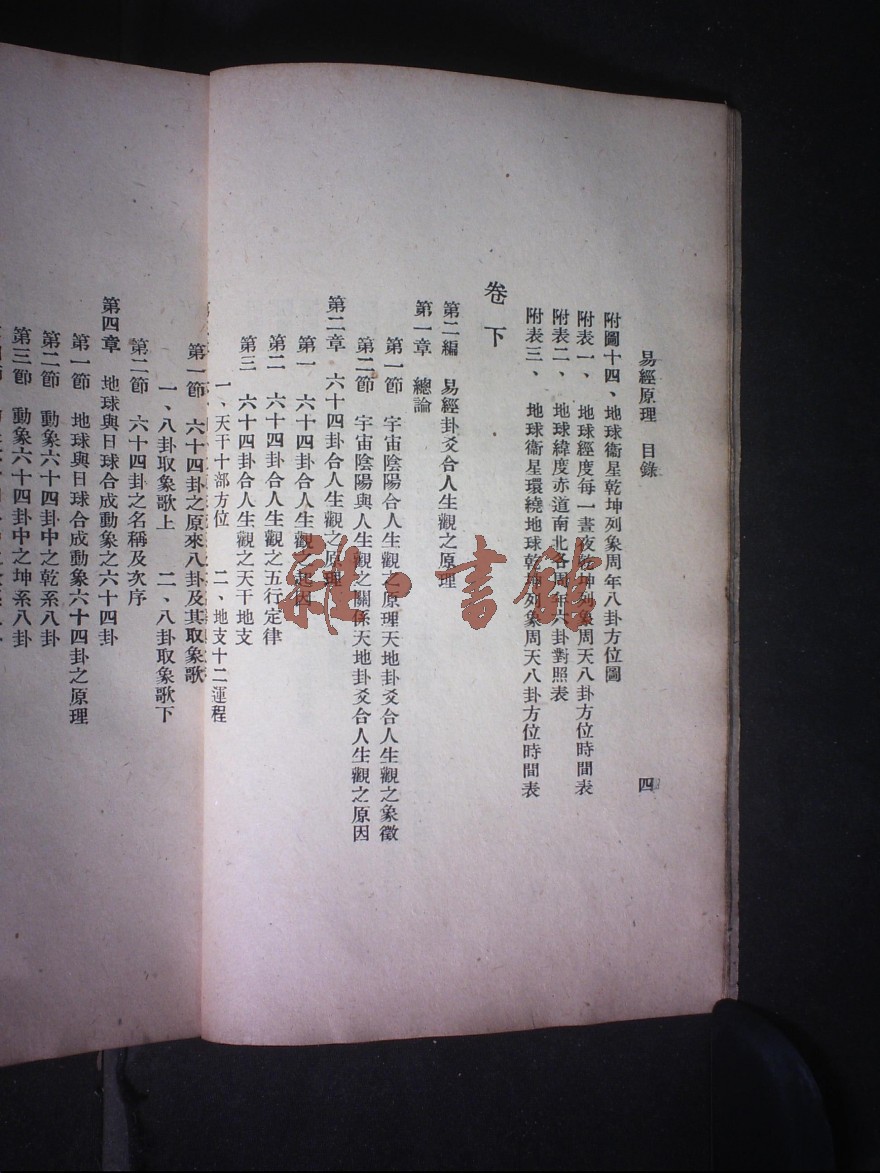 易經原理 目錄 四
附圖十四、地球衞星乾坤列象周年八卦方位圖
附表一、地球經度每一晝夜乾坤列象周天八卦方位時間表
附表二、地球緯度赤道南北各周年六卦對照表
附表三、地球衞星環繞地球乾坤列象周天八卦方位時間表
卷下
第二編 易經卦爻合人生觀之原理
第一章 總論
第一節 宇宙陰陽合人生觀之原理天地卦爻合人生觀之象徵
第二節 宇宙陰陽與人生觀之關係天地卦爻合人生觀之原因
第二章 六十四卦合人生觀之原理
第一 六十四卦合人生觀之起因
第二 六十四卦合人生觀之五行定律
第三 六十四卦合人生觀之天干地支
一、天干十部方位 二、地支十二運程
第一節 六十四卦之原來八卦及其取象歌
一、八卦取象歌上 二、八卦取象歌下
第二節 六十四卦之名稱及次序
第四章 地球與日球合成動象之六十四卦
第一節 地球與日球合成動象六十四卦之原理
第二節 動象六十四卦中之乾系八卦
第三節 動象六十四卦中之坤系八卦
雜·書館